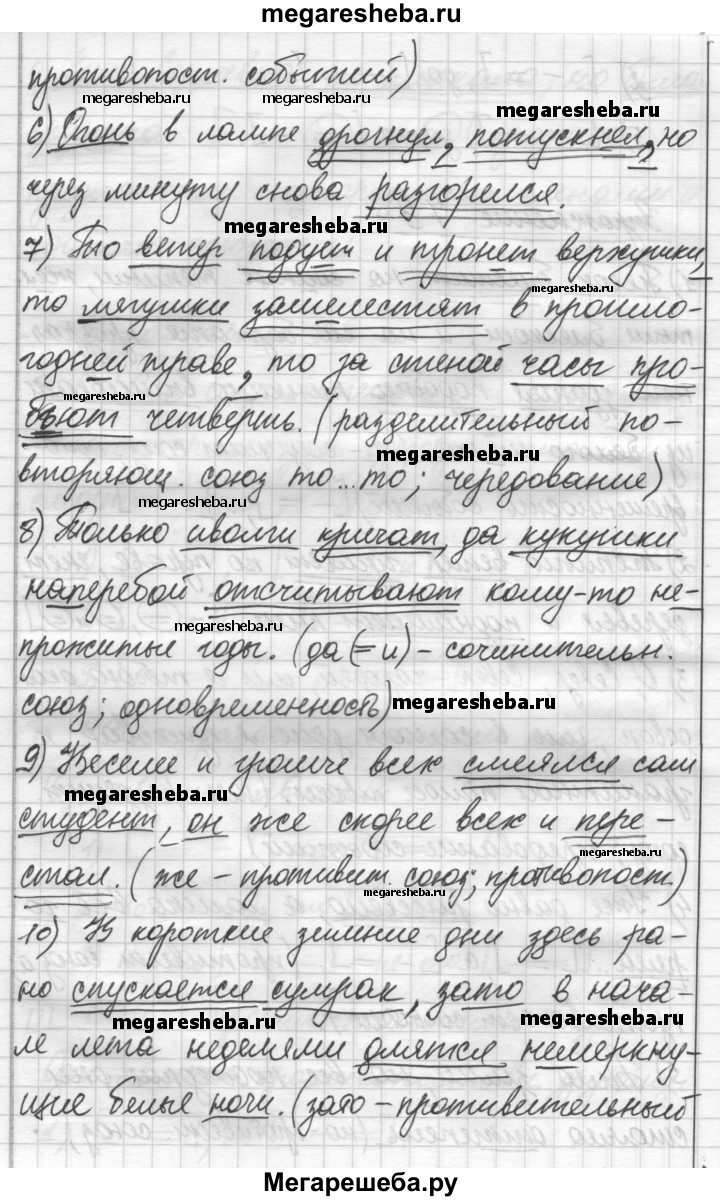 megaresheba.ru
противопост. событий)
megaresheba.ru megaresheba.ru megaresheba.ru
6) Огонь в лампе дрогнул, потускнел, но
через минуту снова разгорелся.
megaresheba.ru
7) То ветер подует и тронет верхушки,
megaresheba.ru
то лягушки зашелестят в прошло-
годней траве, то за стеной часы про-
megaresheba.ru
бьют четверть. (разделительный по-
вторяющ. союз то...то; чередование)
megaresheba.ru
8) Только иволги кричат, да кукушки
наперебой отсчитывают кому-то не-
megaresheba.ru
прожитые годы. (да (= и) - сочинительн.
союз; одновременность) megaresheba.ru
9) Веселее и громче всех смеялся сам
megaresheba.ru
студент, он же скорее всех и пере-
megaresheba.ru
стал. (же - противит. союз; противопост.)
megaresheba.ru
10) В короткие зимние дни здесь ра-
но спускается сумрак, зато в нача-
megaresheba.ru megaresheba.ru
ле лета неделями длятся немеркну-
щие белые ночи. (зато - противительный
Мегарешеба.ру